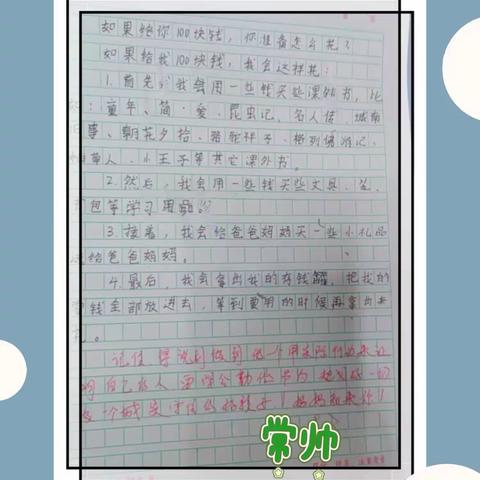 如果给你100块钱，你准备怎么花？
如果给我100块钱，我会这样花：
1.首先，我会用一些钱买些课外书，比
：童年、简·爱、昆虫记、名人传、城南
事、朝花夕拾、骆驼祥子、格列佛游记、
草人、小王子等其它课外书。
2.然后，我会用一些钱买些文具、笔、
包等学习用品。
3.接着，我会给爸爸妈妈买一些小礼品
送给爸爸妈妈。
4.最后，我会拿出我的存钱罐，把我的
钱全部放进去，等到要用的时候再拿出来
花。
记住 得说到做到 用实际行动来证
明自己
个诚实守信 的好孩子！妈妈
常帅